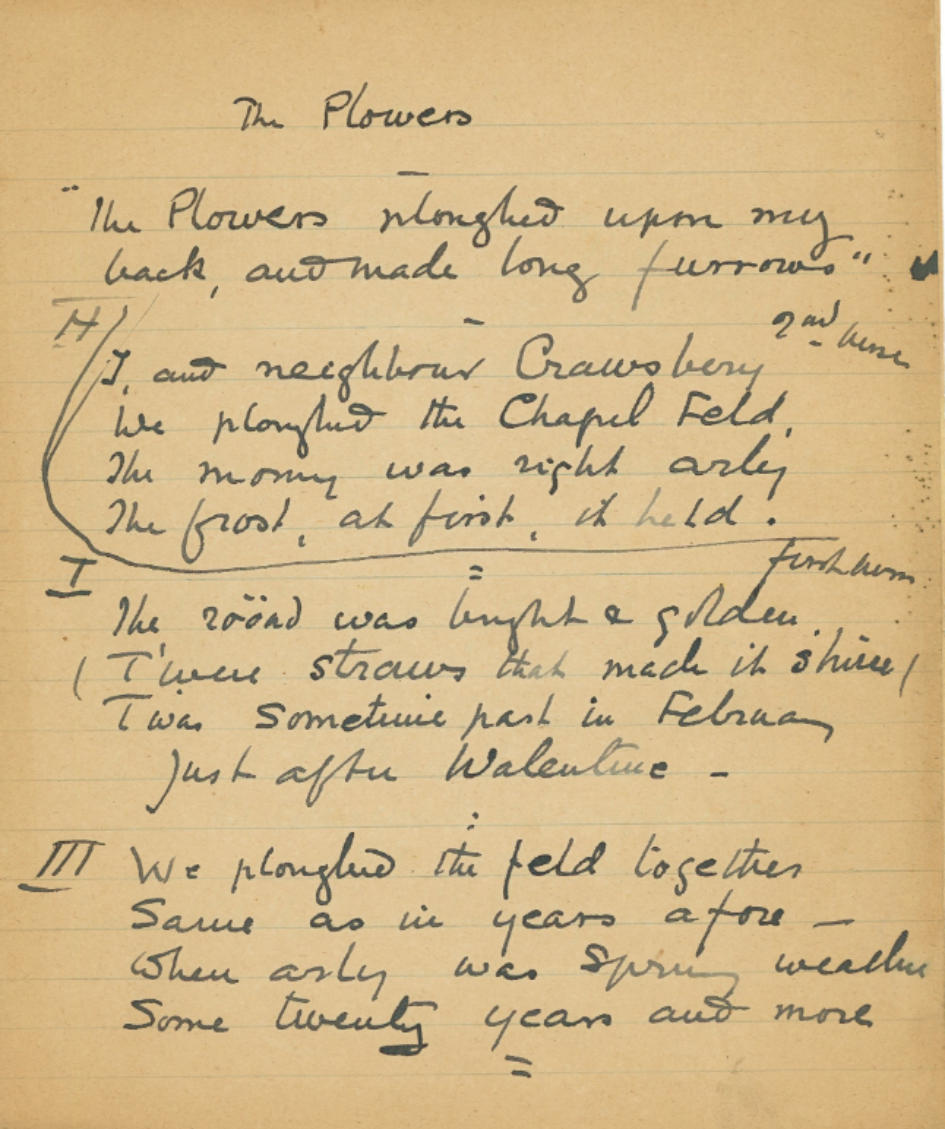 The Plowers
"The Plowers ploughed upon my
back, and made long furrows"
II
2nd verse
I, and neighbour Crawsbery
We ploughed the Chapel Feld,
The morny was right arly
The frost, at first, it held.
I
first verse
The rööad was bright & golden.
(T'were straws that made it shine)
Twas sometime past in February
Just after Walentine –
III
We ploughed the feld together
Same as in years afore –
When arly was Spring weather
Some twenty years and more